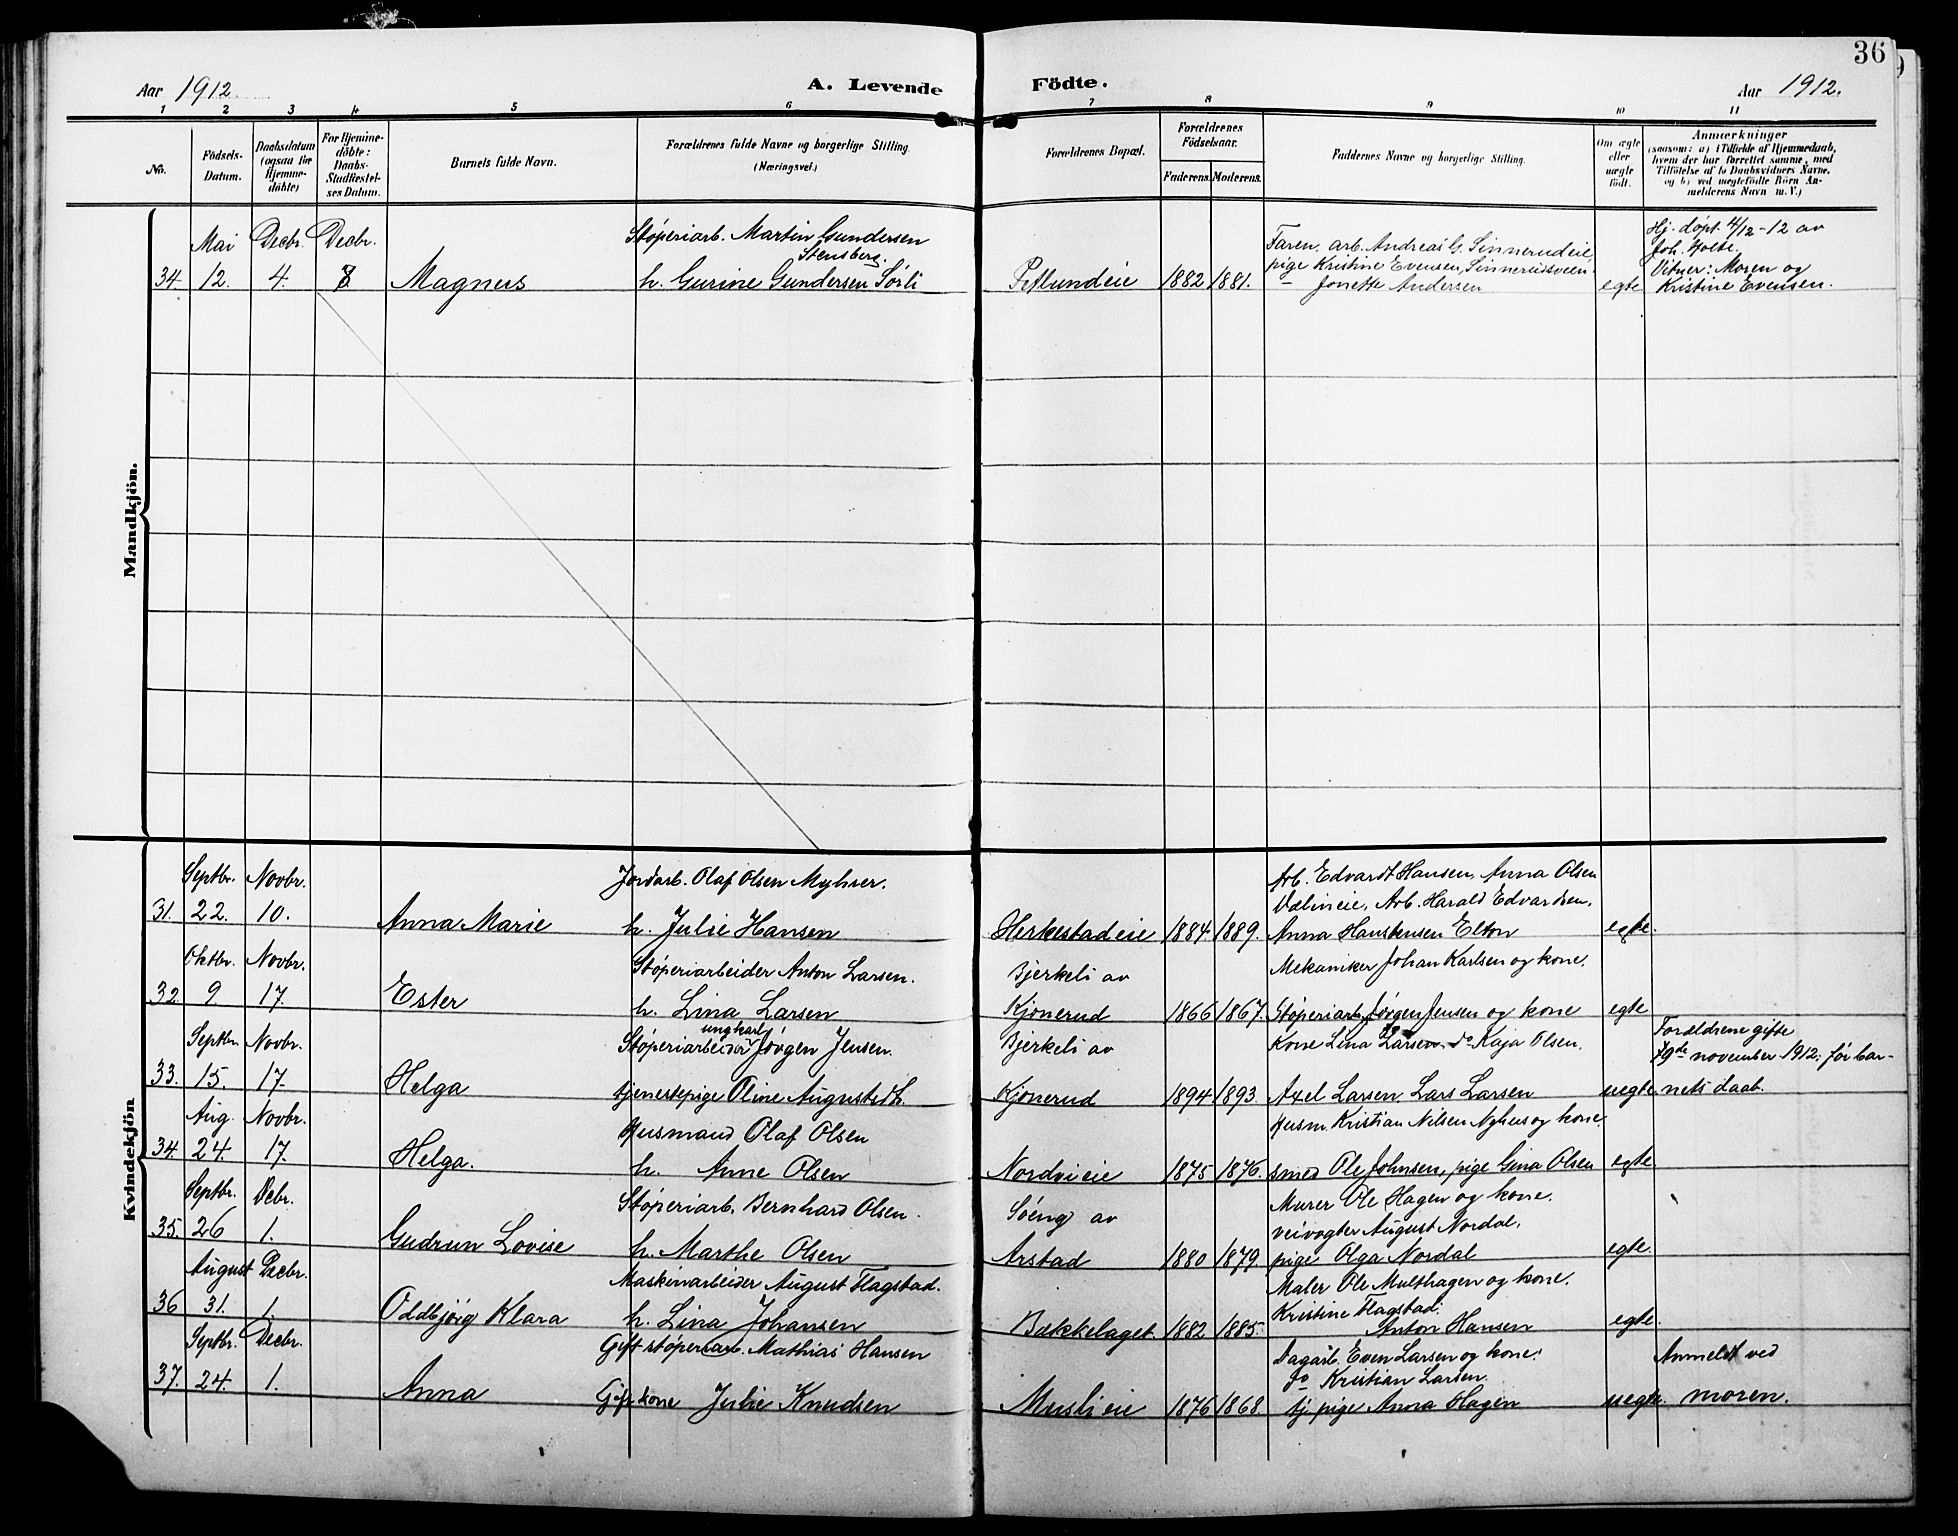 36
Aar 1912. A. Levende Födte. Aar 1912.
1 2 3 4 5 6 7 8 9 10 11
No.
Födsels-
Datum.
Daabsdatum
(ogsaa for
Hjemme-
döbte)
For Hjemme-
döbte:
Daabs-
Stadfæstel-
ses Datum.
Barnets fulde Navn.
Forældrenes fulde Navne og borgerlige Stilling
(Næringsvei.)
Forældrenes Bopæl.
Forældrenes
Födselsaar.
Faderens. Moderens.
Faddernes Navne og borgerlige Stilling.
Om ægte
eller
uægte
födt.
Anmærkninger
(saasom: a) i Tilfælde af Hjemmedaab,
hvem der har forrettet samme, med
Tilföielse af to Daabsvidners Navne.
og b) ved uægtefödte Börn An-
melderens Navn m. V.)
Mandkjön.
34. Mai 12. Decbr. 4. Decbr. 8
Magnus
Støperiarb. Martin Gundersen
Stensberg.
h. Gurine Gundersen Sørli
Petlundeie 1882 1881.
Faren, arb. Andreas G. Sinnerudeie,
pige Kristine Evensen, Sinnerudsveen
Jonette Andersen
egte
Hj. døpt 4/12-12 av
Joh. Holte.
Vitner: Moren og
Kristine Evensen.
Kvindekjön
31. Septbr. 22. Novbr. 10.
Anna Marie
Jordarb. Olaf Olsen Myhrer.
h. Julie Hansen
Herkestadeie 1884 1889.
Arb. Edvardt Hansen, Anna Olsen
Dælineie, Arb. Harald Edvardsen,
Anna Haustensen Elton
egte.
32. Oktbr. 9. Novbr. 17.
Ester
Støperiarbeider Anton Larsen.
h. Lina Larsen
Bjerkeli av
Kjonerud 1866 1867.
Mekaniker Johan Karlsen og kone.
Støperiarb. Jørgen Jensen og kone
egte
33. Septbr. 15. Novbr. 17.
Helga
ungkarl
Støperiarbeider Jørgen Jensen.
tjenestepige Oline Augusta L.
Bjerkeli av
Kjonerud 1894 1893.
Kone Lina Larsen, do Kaja Olsen.
Axel Larsen Lars Larsen
uegte.
Forældrene gifte
29de november 1912, før bar-
nets daab.
34. Aug. 24. Novbr. 17.
Helga.
Husmand Olaf Olsen
h. Anne Olsen
Nordvieie 1875 1876.
Husm. Kristian Nilsen Nyhus og kone.
smed Ole Johnsen, pige Gina Olsen
egte.
35. Septbr. 26 Debr. 1.
Gudrun Lovise
Støperiarb. Bernhard Olsen.
h. Marthe Olsen
Søeng av
Arstad 1880 1879.
Murer Ole Hagen og kone.
veivogter August Nordal,
pige Olga Nordal
egte.
36 August 31. Decbr. 1.
Oddbjörg Klara
Maskinarbeider August Flagstad.
h. Lina Johansen
Bækkelaget 1882 1885.
Maler Ole Multhagen og kone.
Kristine Flagstad.
Anton Hansen
egte.
37. Septbr. 24. Decbr. 1.
Anna
Gift støperiarb. Mathias Hansen
Gift kone Julie Knudsen
Muslieie 1876 1868
Dagarb. Even Larsen og kone.
do Kristian Larsen.
tj. pige Anna Hagen
uegte.
Anmeldt ved
moren.